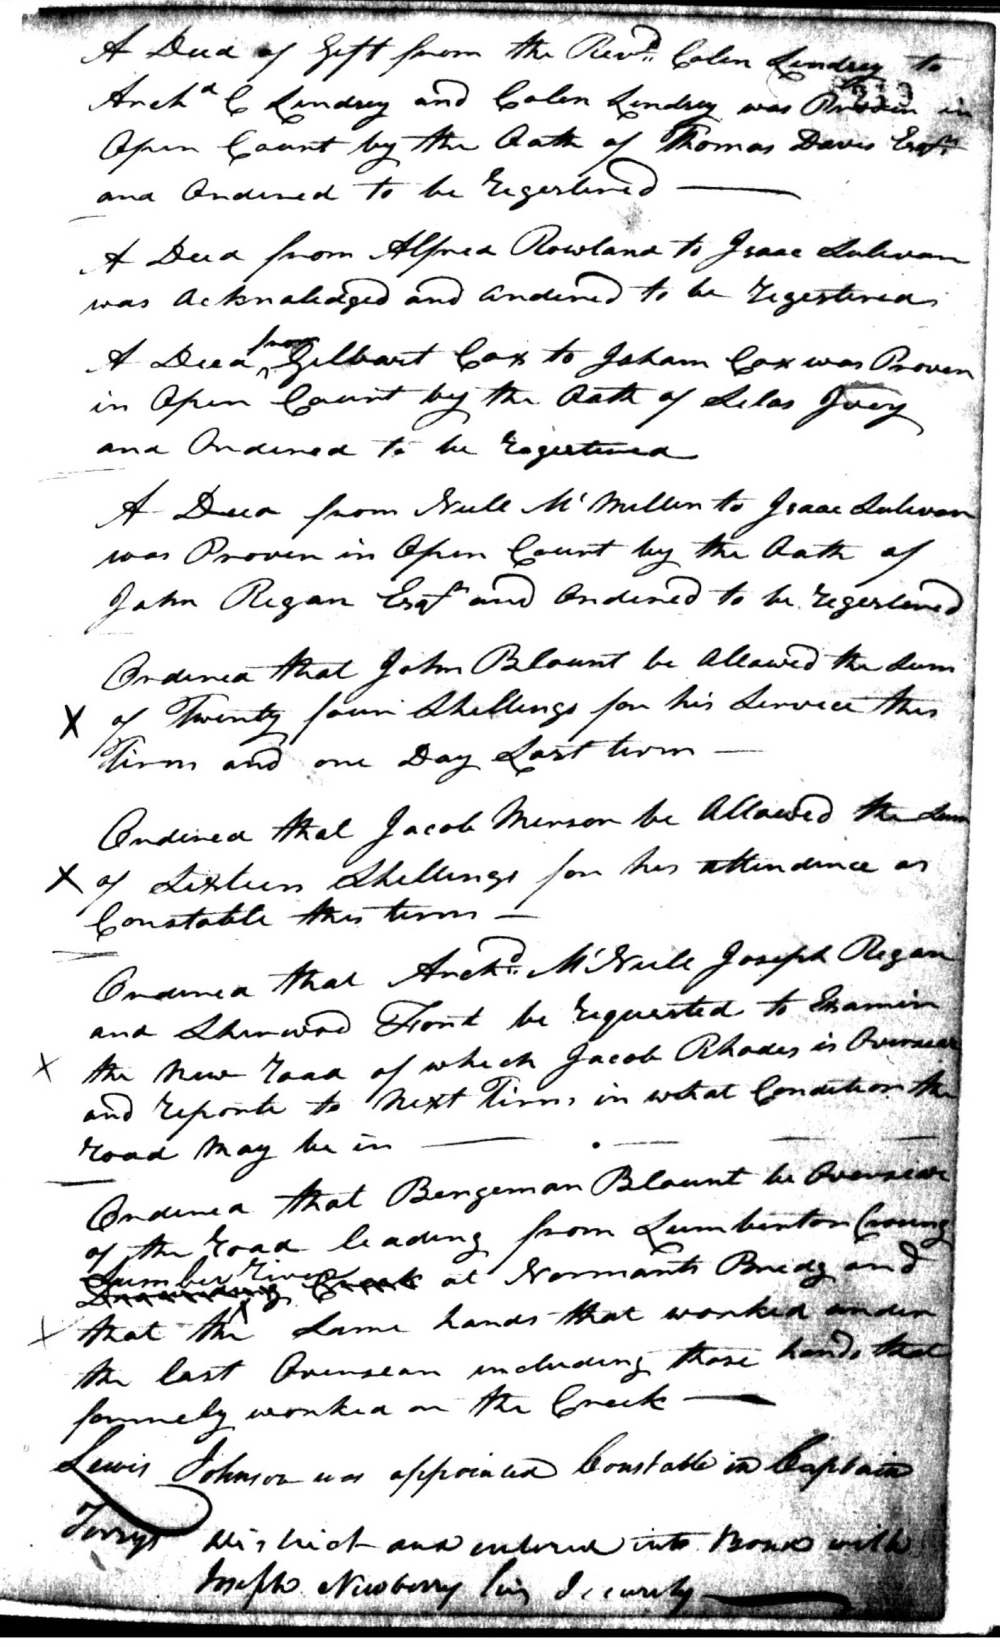 A Deed of Gift from the Revd. Colen Lindsey to
Archd C Lindsey and Colen Lindsey was Proven in
Open Court by the Oath of Thomas Davis Esqr.
and Ordered to be Regestered
A Deed from Alfred Rowland to Isaac Sulivan
was Acknoledged and ordered to be regestered
A Deed from Gilbart Cox to Joham Cox was Proven
in Open Court by the Oath of Selas Ivey
and Ordered to be Regestered
A Deed from Neill McMillen to Isaac Sulivan
was Proven in Open Court by the Oath of
John Regan Esqr and Ordered to be regestered
Ordered that John Blount be Allowed the Sum
X of Twenty four Shellings for his Service this
Term and one Day Last term
Ordered that Jacob Merson be Allowed the Sum
X of Sixteen Shellings for his attendince as
Constable this term
Ordered that Archd. McNeill Joseph Regan
and Sherwood Fort be requested to Examin
X the New road of which Jacob Rhodes is Overseer
and reporte to Next Term in what Condition the
road May be in
Ordered that Bengeman Blount be Overseer
of the road leading from Lumberton Crossing
Lumber River at Normants Bredg and
X that the Same hands that worked under
the last Overseer including those hands that
formely worked on the Creek
Lewis Johnson was appointed Constable in Captain
Terrys district and entered into Bond with
Joseph Newberry his Security